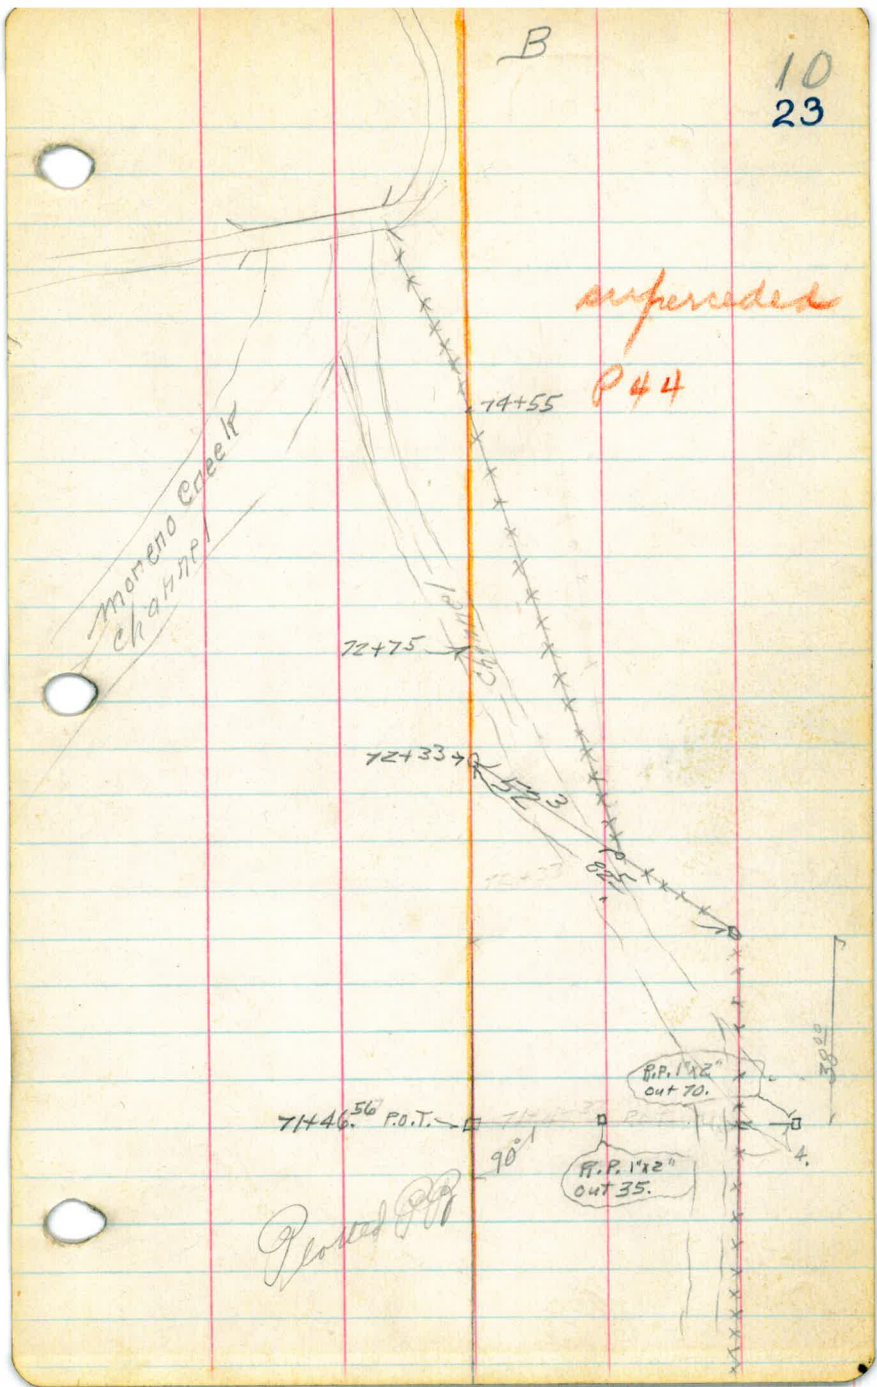 B
10
23
superceded
P 44
74+55
Moreno Creek
Channel
72+75
Channel
72+33
825
38.00
R.P. 1"x2"
out 70.
71+46.56 P.O.T.
90°
R.P. 1"x2"
out 35.
4.
Plotted